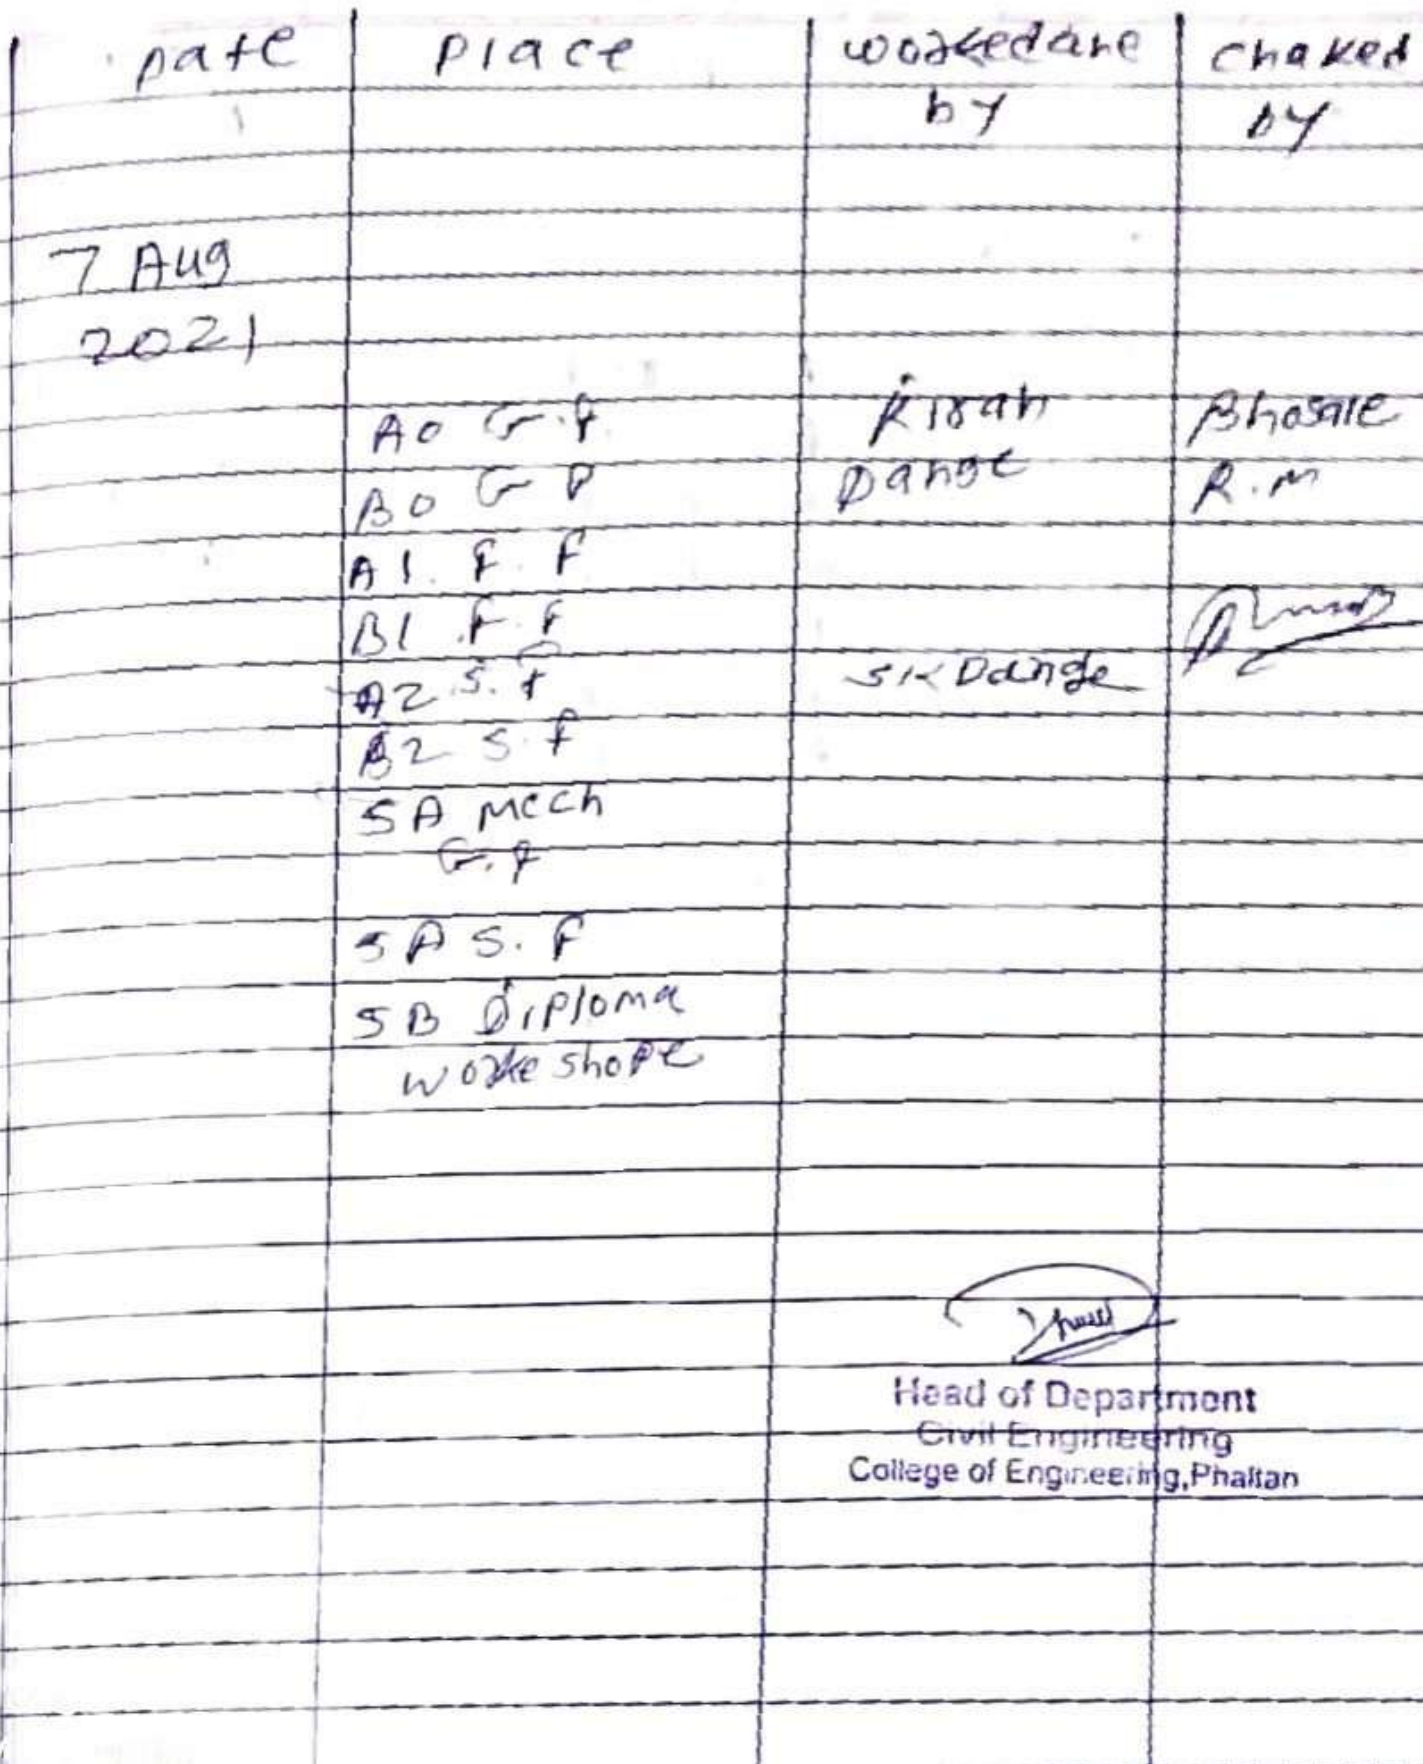 Date Place workedane chaked
by by
7 Aug
2021
A0 G.F Kiran Bhosale
B0 G F Dange R.M
A1. F. F
B1 .F.F
A2 S.F SK Dange
B2 S.F
5A Mech
G.F
5A S.F
5B Diploma
worke shope
Head of Department
Civil Engineering
College of Engineering,Phaltan